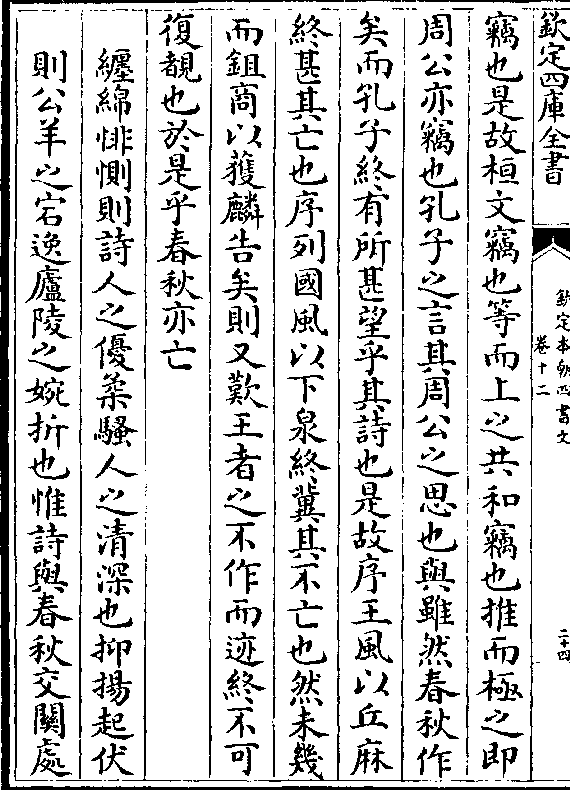 欽定四庫全書
欽定本朝四書文
卷十二
二十四
竊也是故桓文竊也等而上之共和竊也推而極之即
周公亦竊也孔子之言其周公之思也與雖然春秋作
矣而孔子終有所甚望乎其詩也是故序王風以丘麻
終甚其亡也序列國風以下泉終冀其不亡也然未幾
而鉏商以獲麟告矣則又歎王者之不作而迹終不可
復覩也於是乎春秋亦亡
纏綿悱惻則詩人之優柔騷人之清深也抑揚起伏
則公羊之宕逸廬陵之婉折也惟詩與春秋交關處